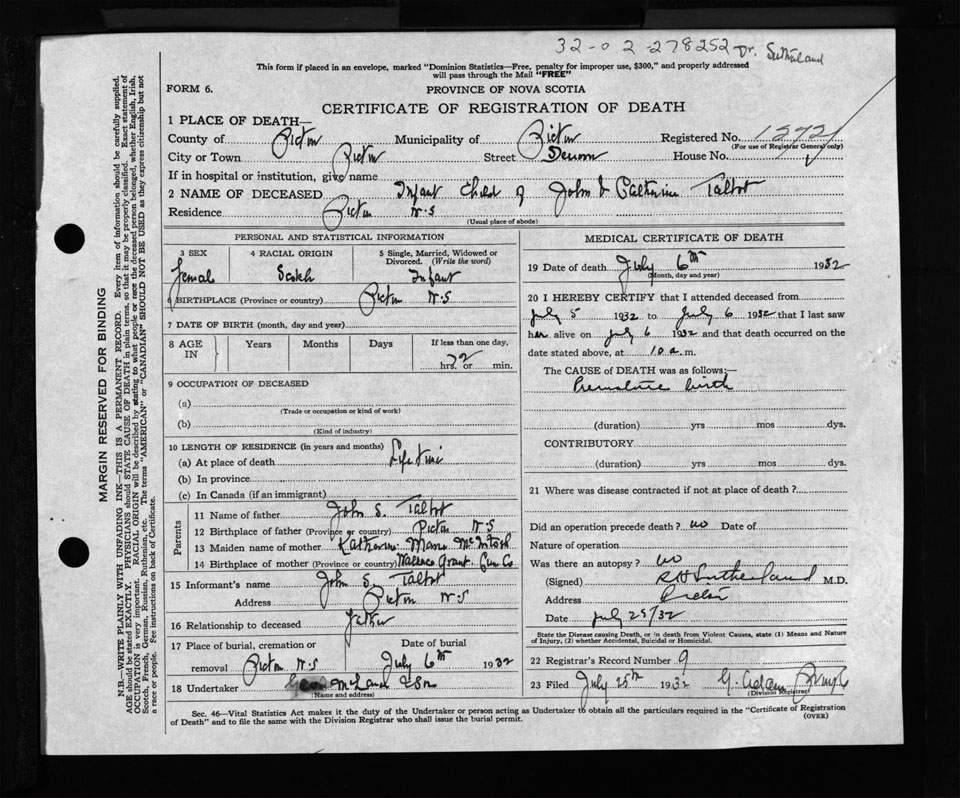 32-02-278252 Dr. Sutherland
This form if placed in an envelope, marked "Dominion Statistics—Free, penalty for improper use, $300," and properly addressed
will pass through the Mail "FREE"
FORM 6.
PROVINCE OF NOVA SCOTIA
CERTIFICATE OF REGISTRATION OF DEATH
1 PLACE OF DEATH—
County of Pictou Municipality of Pictou Registered No.
(For use of Registrar General only)
City or Town Pictou Street Denoon House No.
If in hospital or institution, give name
2 NAME OF DECEASED Infant Child of John & Catherine Talbot
Residence Pictou N.S
(Usual place of abode)
PERSONAL AND STATISTICAL INFORMATION
3 SEX 4 RACIAL ORIGIN 5 Single, Married, Widowed or
Divorced. (Write the word)
Female Scotch Infant
6 BIRTHPLACE (Province or country) Pictou N.S
7 DATE OF BIRTH (month, day and year)
8 AGE IN Years Months Days If less than one day,
hrs. or min.
9 OCCUPATION OF DECEASED
(a)
(Trade or occupation or kind of work)
(b)
(Kind of industry)
10 LENGTH OF RESIDENCE (in years and months)
(a) At place of death Life time
(b) In province
(c) In Canada (if an immigrant)
Parents
11 Name of father John S. Talbot
12 Birthplace of father (Province or country) Pictou N.S
13 Maiden name of mother Katherine McIntosh
14 Birthplace of mother (Province or country) Grant
15 Informant's name John S. Talbot
Address Pictou N.S
16 Relationship to deceased Father
17 Place of burial, cremation or Date of burial
removal Pictou N.S July 6th 1932
18 Undertaker & Son
(Name and address)
MEDICAL CERTIFICATE OF DEATH
19 Date of death July 6th 1932
(Month, day and year)
20 I HEREBY CERTIFY that I attended deceased from
July 5 1932 to July 6 1932 that I last saw
her alive on July 6 1932 and that death occurred on the
date stated above, at 10 a.m.
The CAUSE of DEATH was as follows:—
Premature birth
(duration) yrs mos dys.
CONTRIBUTORY
(duration) yrs mos dys.
21 Where was disease contracted if not at place of death?
Did an operation precede death? no Date of
Nature of operation
Was there an autopsy? no
(Signed) R H Sutherland M.D.
Address Pictou
Date July 25/32
State the Disease causing Death, or in death from Violent Causes, state (1) Means and Nature
of Injury, (2) whether Accidental, Suicidal or Homicidal.
22 Registrar's Record Number 9
23 Filed July 25th 1932 G. Adam
(Division Registrar)
Sec. 46—Vital Statistics Act makes it the duty of the Undertaker or person acting as Undertaker to obtain all the particulars required in the "Certificate of Registration
of Death" and to file the same with the Division Registrar who shall issue the burial permit.
(OVER)
MARGIN RESERVED FOR BINDING
N.B.—WRITE PLAINLY WITH UNFADING INK—THIS IS A PERMANENT RECORD. Every item of information should be carefully supplied.
AGE should be stated EXACTLY. PHYSICIANS should STATE CAUSE OF DEATH in plain terms, so that it may be properly classified. Exact statement of
OCCUPATION is very important. RACIAL ORIGIN will be described by stating to what people or race the deceased person belonged, whether English, Irish,
Scotch, French, German, Russian, Ruthenian, etc. The terms "AMERICAN" or "CANADIAN" SHOULD NOT BE USED as they express citizenship but not
a race or people. See instructions on back of Certificate.